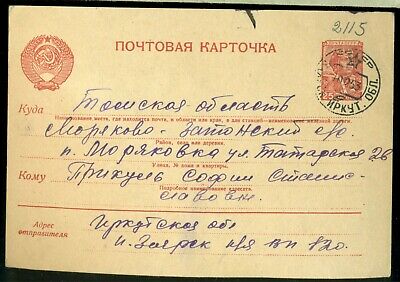 2115
ПОЧТОВАЯ КАРТОЧКА
ИРКУТ. ОБЛ.
Куда Томская область
Наименование места, где находится почта, и области или края, а для станций—наименование железной дороги.
Моряково-Затонский с/о
Район, село или деревня.
п. Моряковка ул. Татарская 26
Улица, № дома и квартиры.
Кому Прикуль Софии Станис-
Подробное наименование адресата.
лавовне
Адрес
отправителя
Иркутская обл
п. Заярск п/я 120.